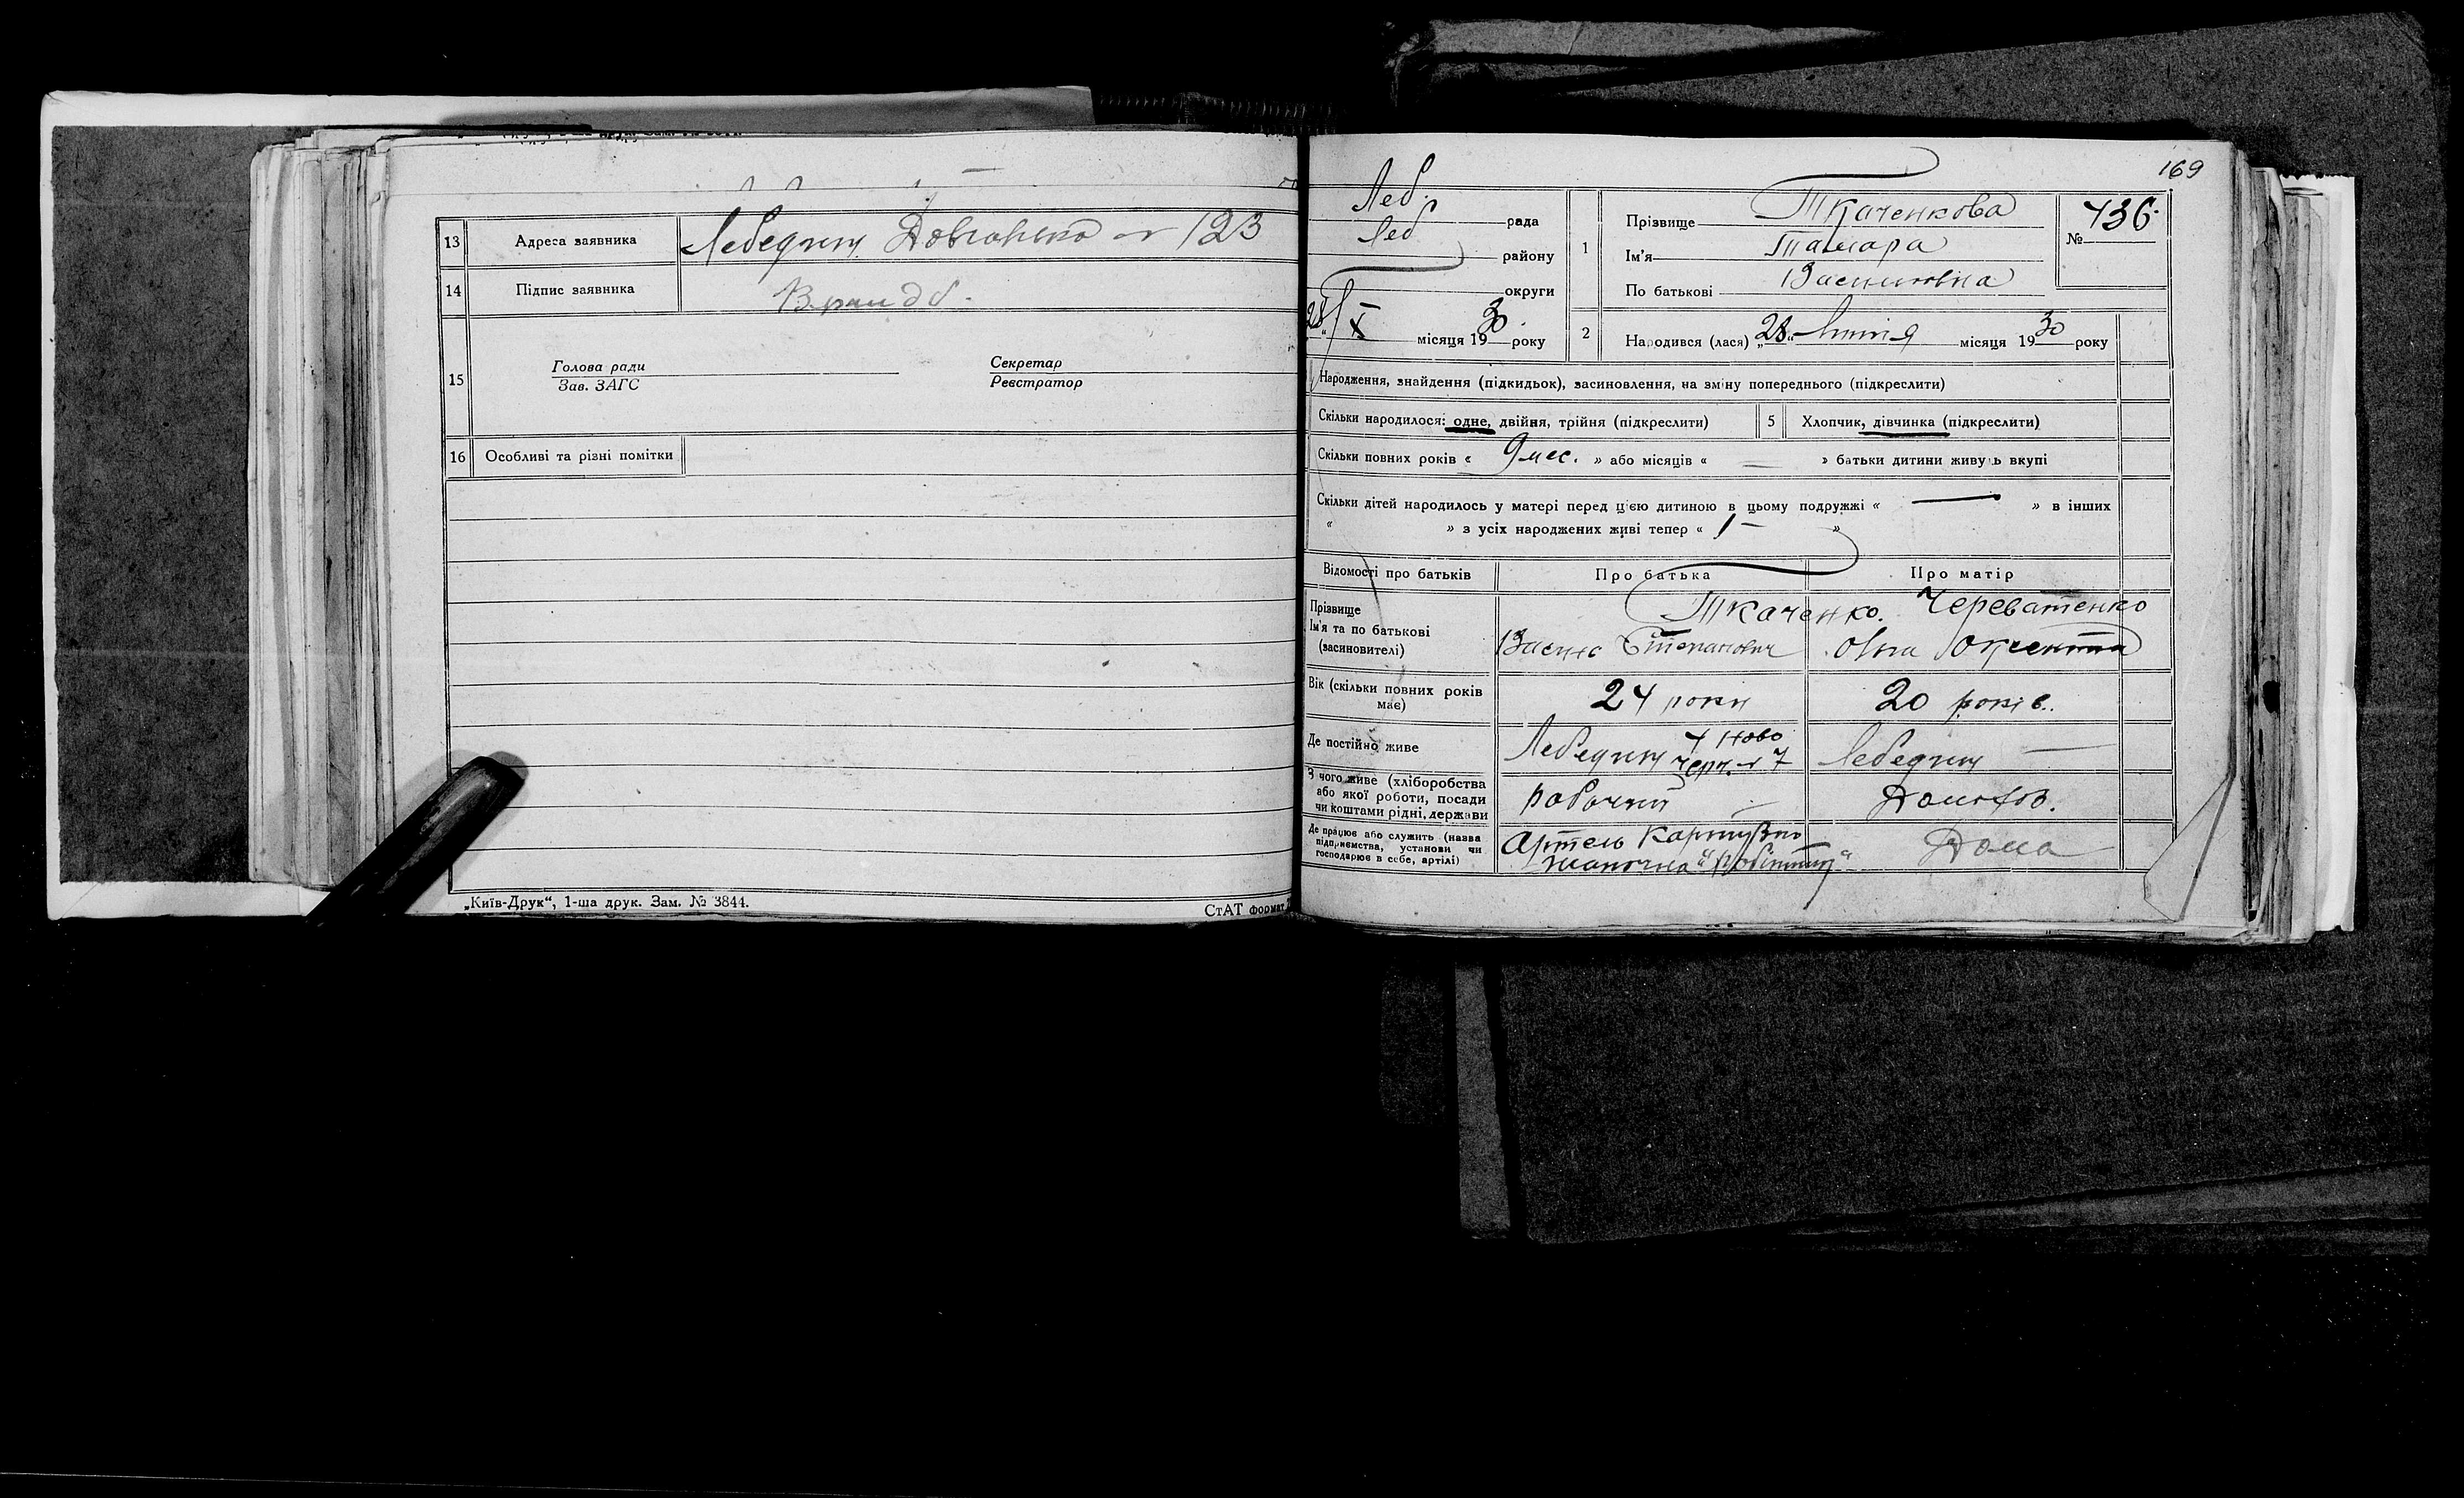 13 Адреса заявника Лебедин 123
14 Підпис заявника
15 Голова ради Секретар
Зав. ЗАГС Реєстратор
16 Особливі та різні помітки
„Київ-Друк“, 1-ша друк. Зам. № 3844.
СтАТ формат
169
Леб. рада
Леб району
округи
28 X місяця 1930 року
1 Прізвище Ткаченкова
Ім'я Тамара
По батькові Василівна
№ 436
2 Народився (лася) „28“ липня місяця 1930 року
Народження, знайдення (підкидьок), засиновлення, на зміну попереднього (підкреслити)
Скільки народилося: одне, двійня, трійня (підкреслити) 5 Хлопчик, дівчинка (підкреслити)
Скільки повних років « 9 мес. » або місяців « — » батьки дитини живуть вкупі
Скільки дітей народилось у матері перед цією дитиною в цьому подружжі « — » в інших
« » з усіх народжених живі тепер « 1 — »
Відомості про батьків Про батька Про матір
Прізвище Ткаченко. Череватенко
Ім'я та по батькові
(засновителі) Василь Степанович
Вік (скільки повних років
має) 24 роки 20 років.
Де постійно живе Лебедин Ново 7 Лебедин —
З чого живе (хліборобства
або якої роботи, посади
чи коштами рідні, держави робочий Домохоз.
Де працює або служить (назва
підприємства, установи чи
господарює в себе, артілі) Артель Дома